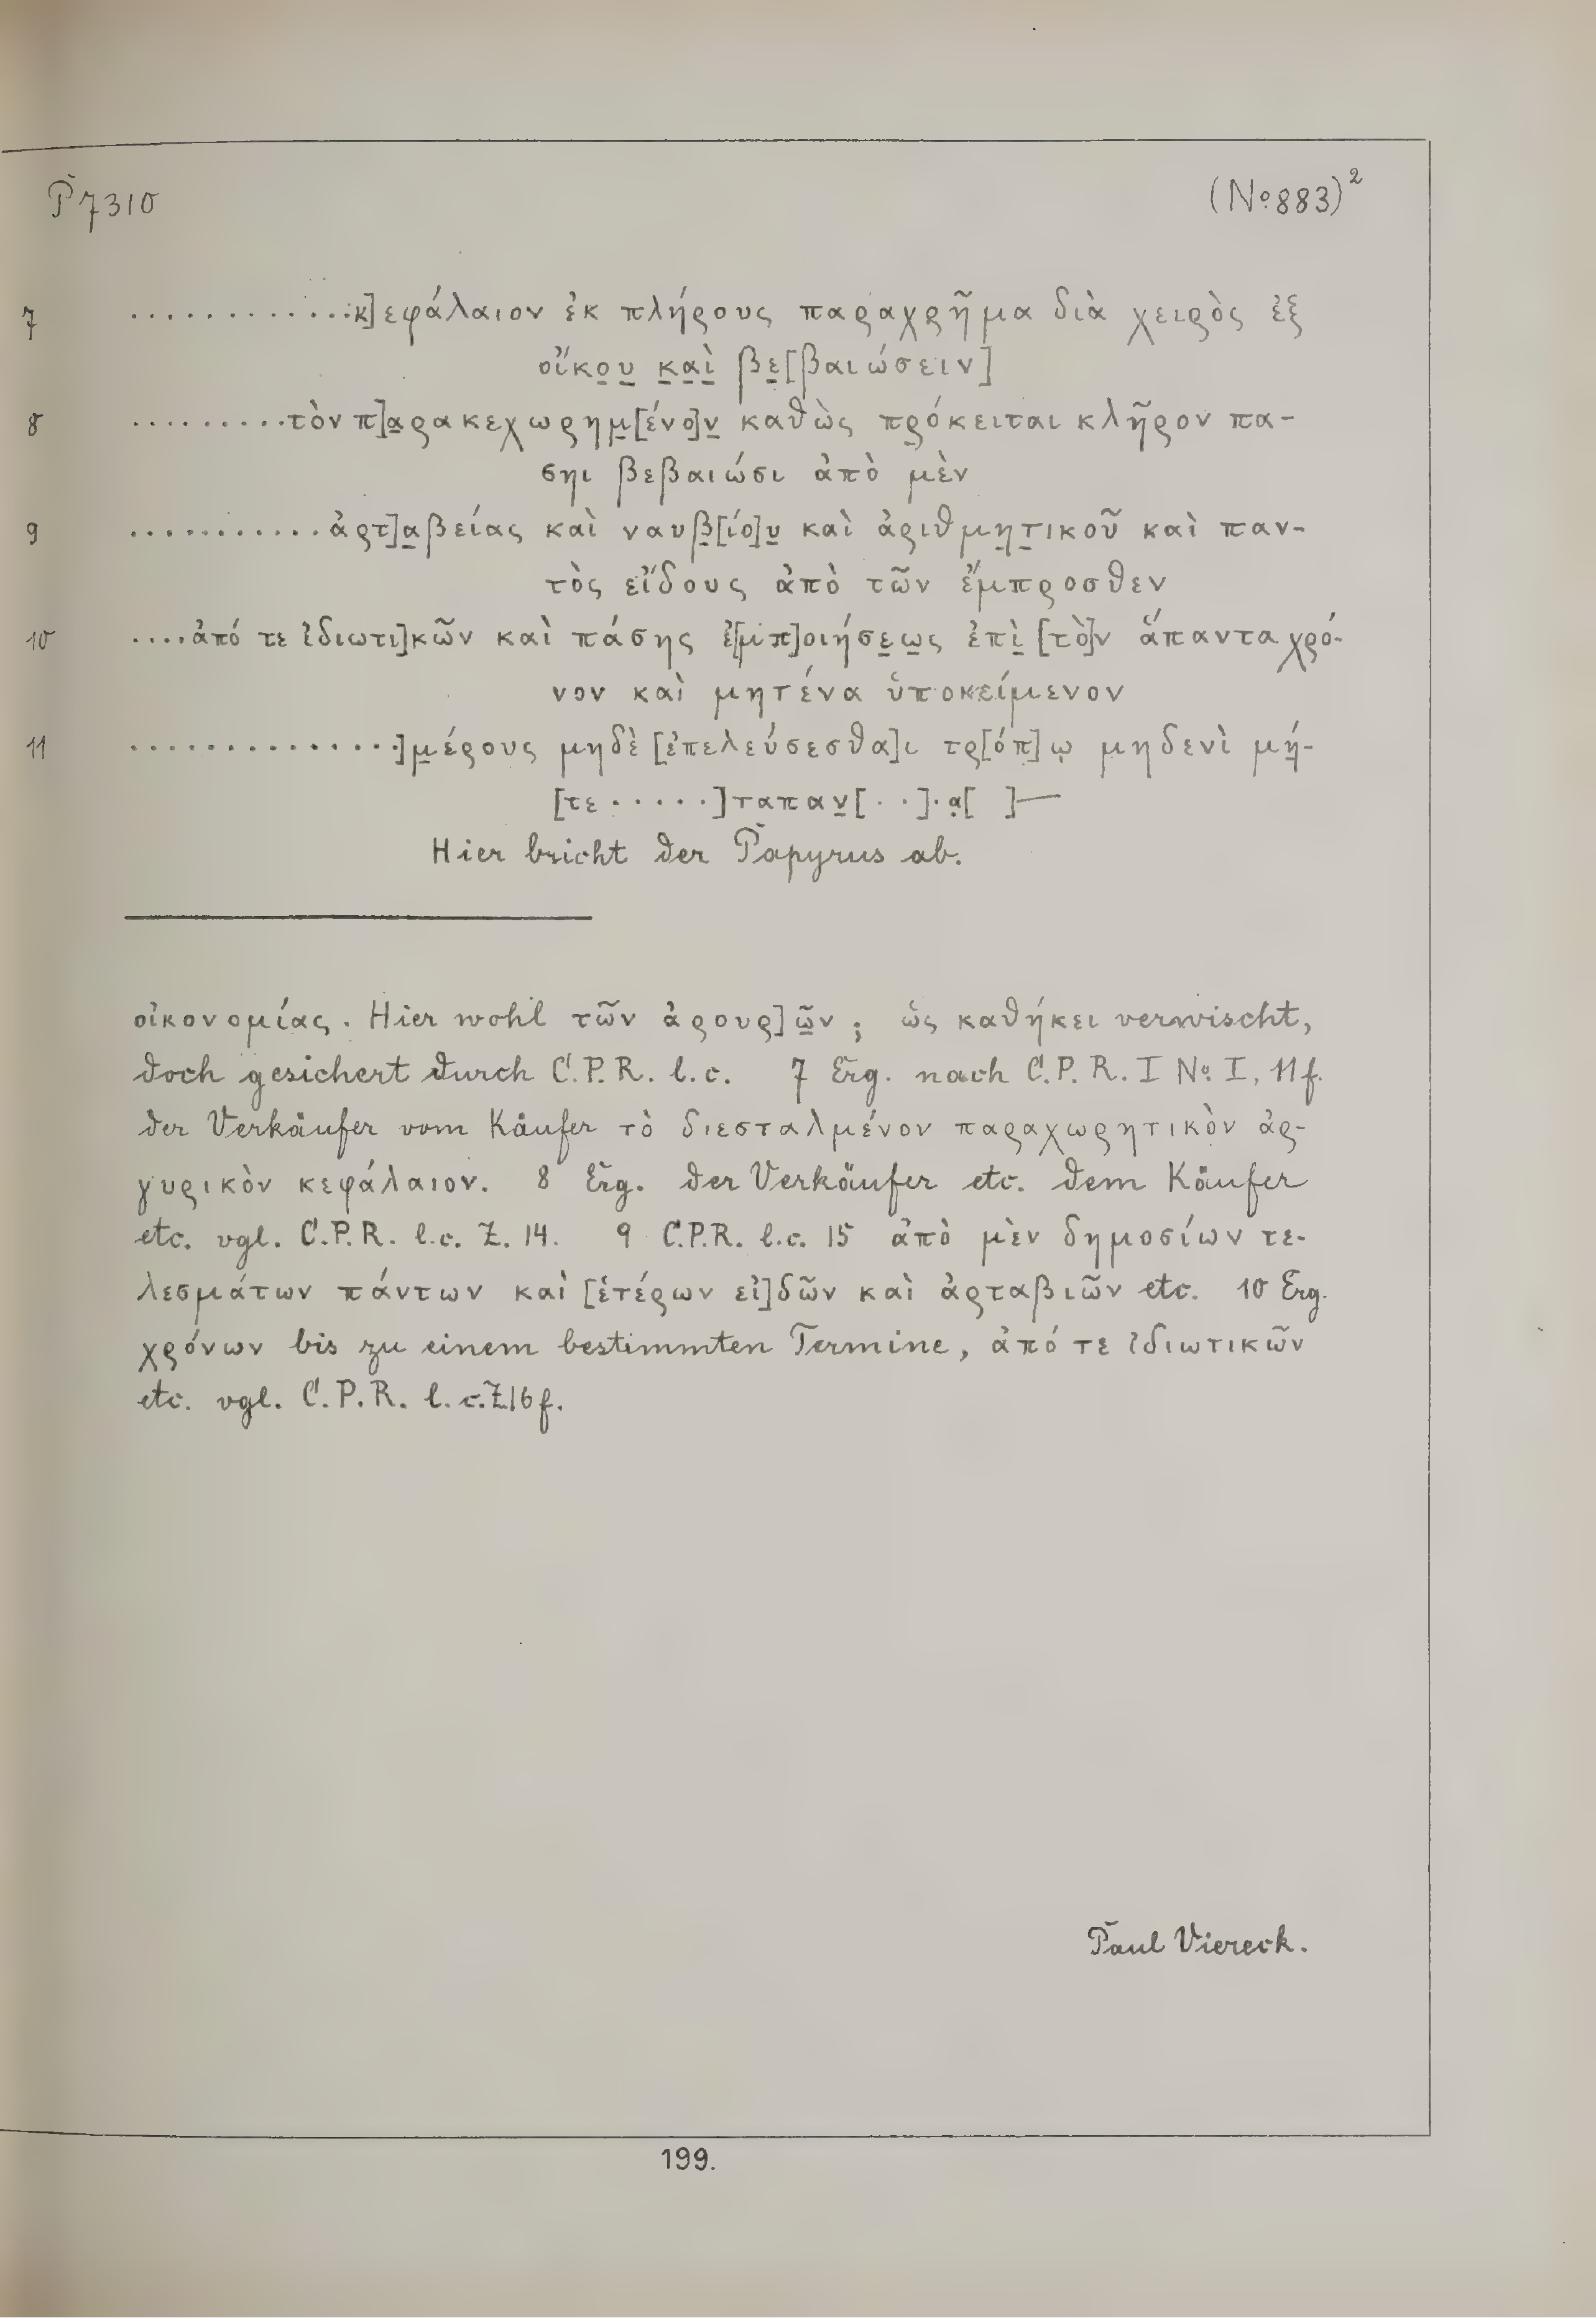 P 7310 (No 883)²
7 ............κ]εφάλαιον ἐκ πλήρους παραχρῆμα διὰ χειρὸς ἐξ
οἴκο̣υ̣ κ̣α̣ὶ̣ βε̣[βαιώσειν]
8 .........τὸν π]α̣ρακεχωρημ̣[ένο]ν̣ καθὼς πρ̣όκειται κλῆρον πα-
σηι βεβαιώσι ἀπὸ μὲν
9 ...........ἀρτ]α̣βείας καὶ ναυβ̣[ίο]υ̣ καὶ ἀριθμη̣τ̣ικοῦ καὶ παν-
τὸς εἴδους ἀπὸ τῶν ἔμπροσθεν
10 ....ἀπό τε ἰδιωτι]κῶν καὶ πάσης ἐ[μπ]οιήσε̣ω̣ς ἐπὶ̣ [τὸ]ν ἅπαντα χρό-
νον καὶ μητένα ὑποκείμενον
11 ...............]μ̣έρους μηδὲ [ἐπελεύσεσθα]ι τρ[όπ]ῳ μηδενὶ μή̣-
[τε ·····]ταπαν̣[··]·α̣[ ]—
Hier bricht der Papyrus ab.
οἰκονομίας. Hier wohl τῶν ἀρουρ]ῶ̣ν; ὡς καθήκει verwischt,
doch gesichert durch C.P.R. l.c. 7 Erg. nach C.P.R. I No. I, 11f.
der Verkäufer vom Käufer τὸ διεσταλμένον παραχωρητικὸν ἀρ-
γυρικὸν κεφάλαιον. 8 Erg. der Verkäufer etc. dem Käufer
etc. vgl. C.P.R. l.c. Z. 14. 9 C.P.R. l.c. 15 ἀπὸ μὲν δημοσίων τε-
λεσμάτων πάντων καὶ [ἑτέρων εἰ]δῶν καὶ ἀρταβιῶν etc. 10 Erg.
χρόνων bis zu einem bestimmten Termine, ἀπό τε ἰδιωτικῶν
etc. vgl. C.P.R. l. c. Z 16 f.
Paul Viereck.
199.